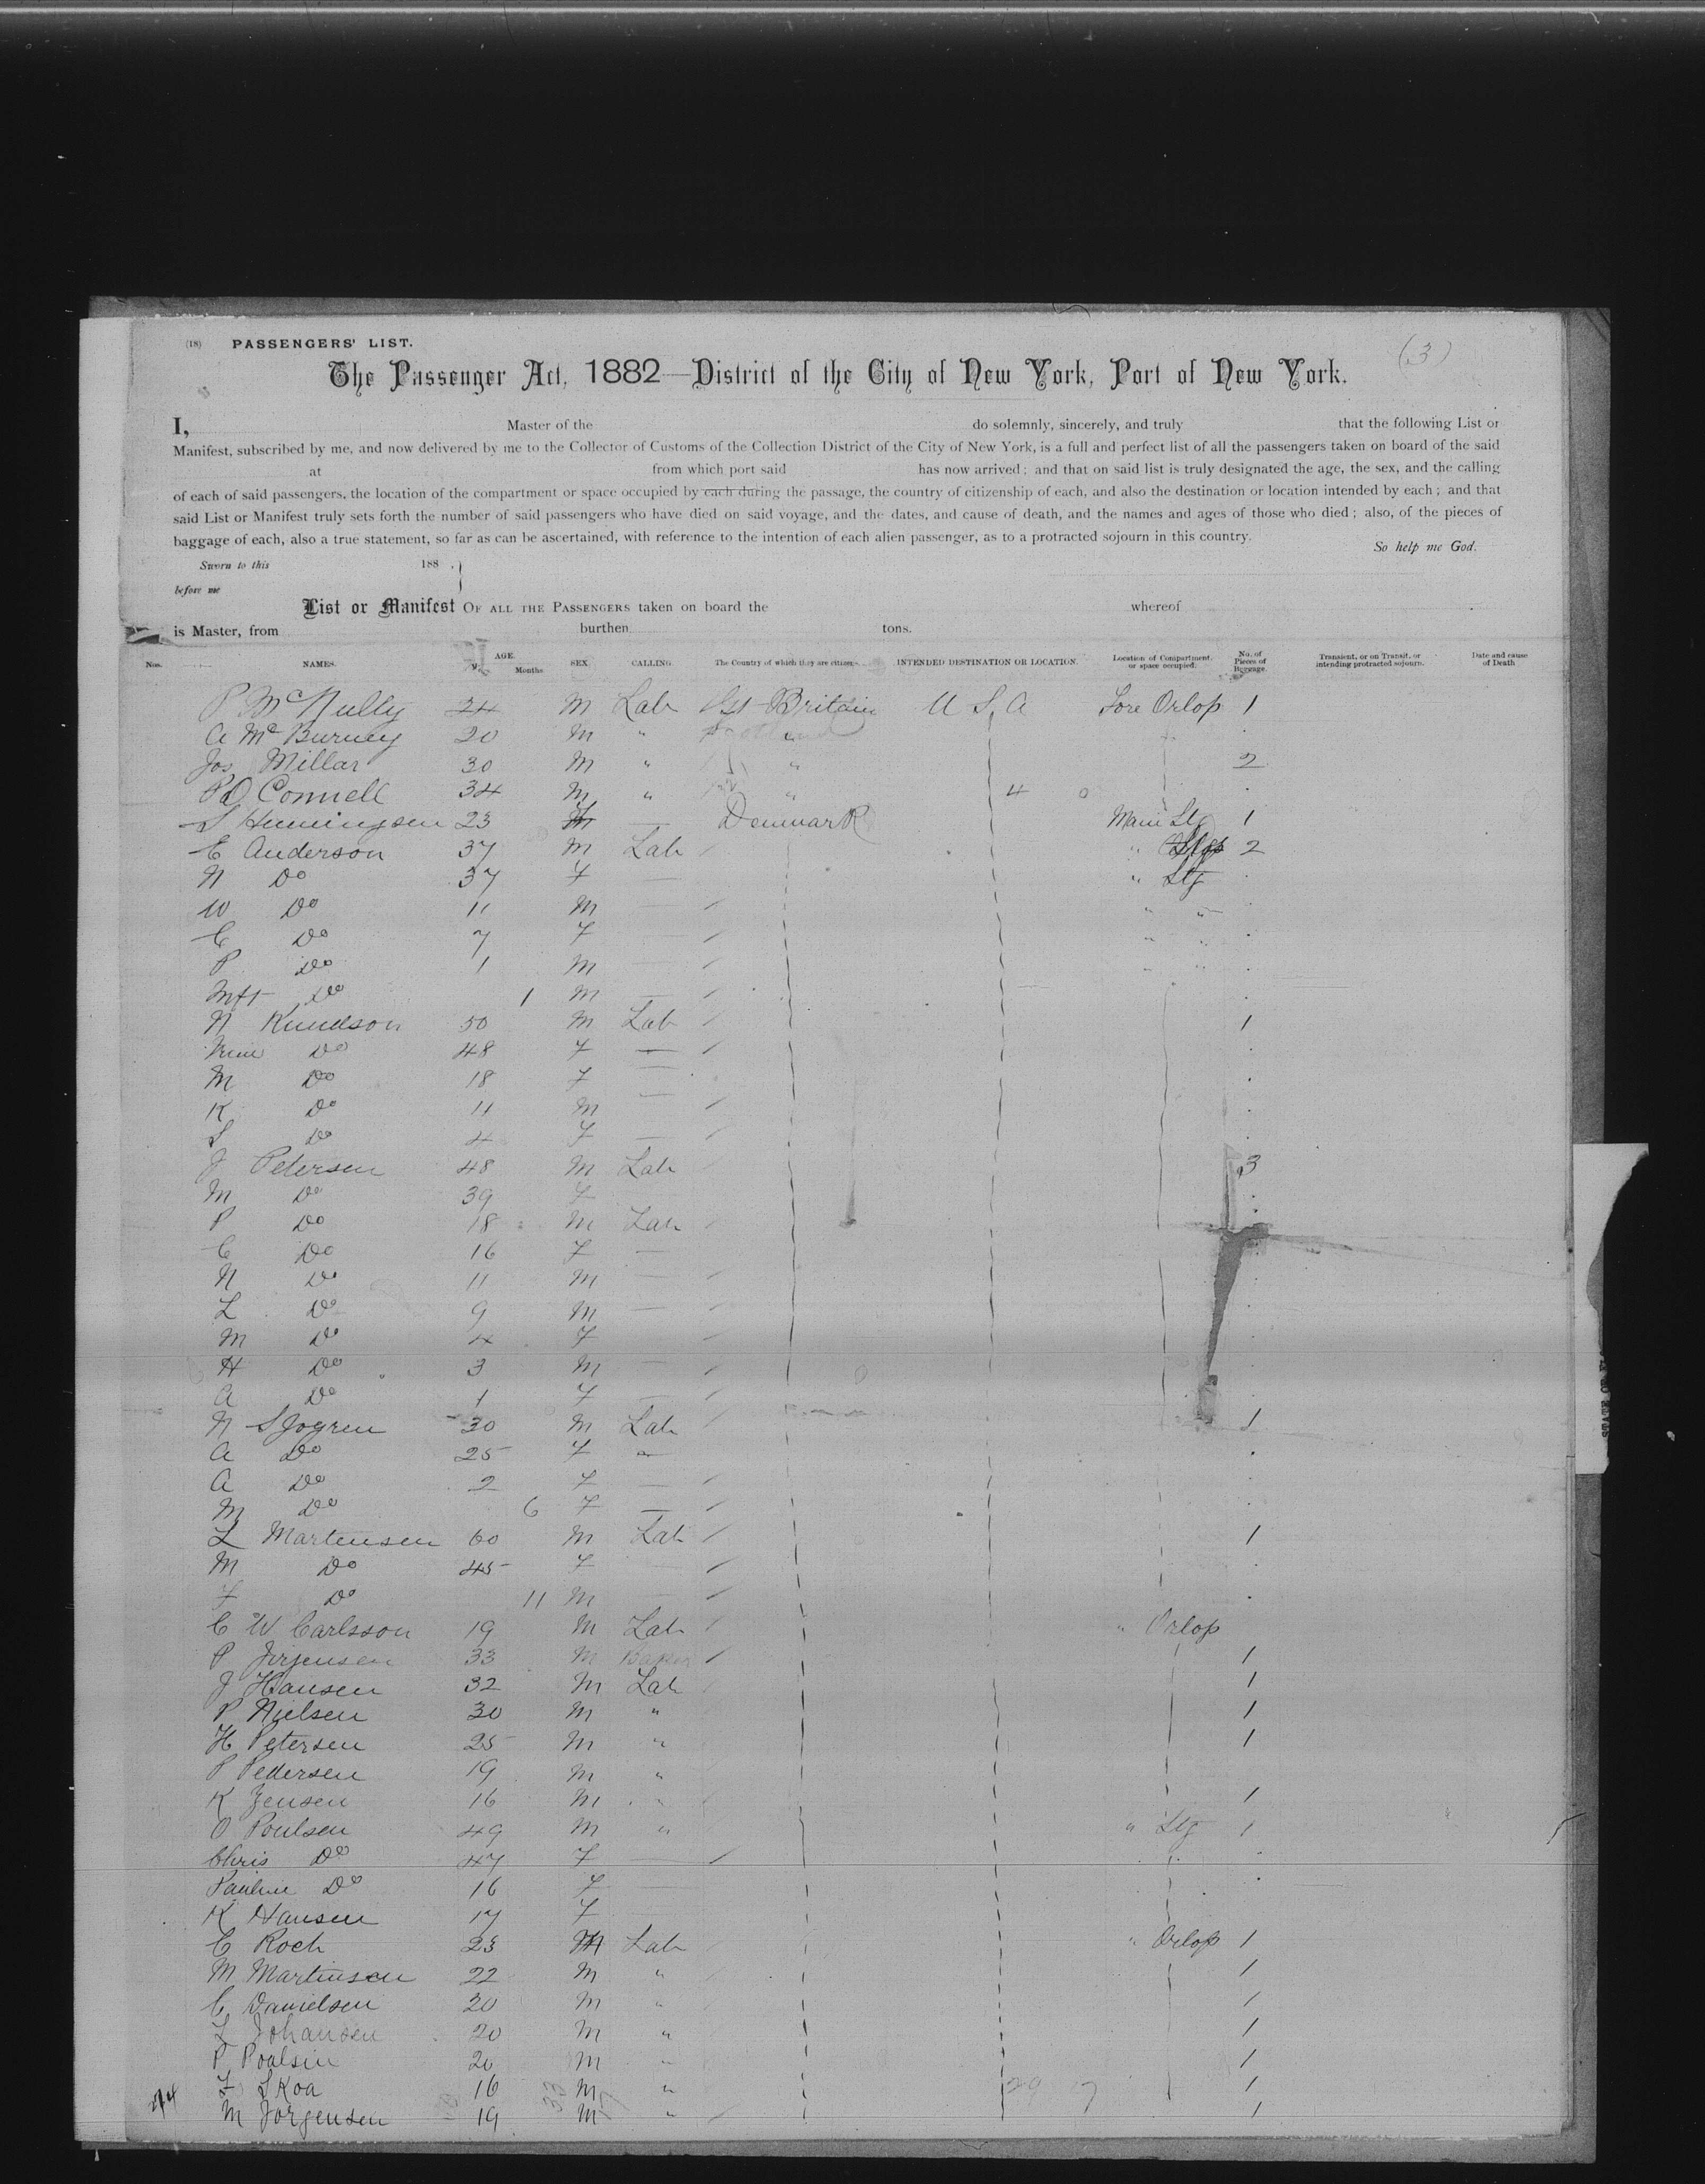 (18) PASSENGERS' LIST. (3)
The Passenger Act, 1882—District of the City of New York, Port of New York.
I, Master of the do solemnly, sincerely, and truly that the following List or
Manifest, subscribed by me, and now delivered by me to the Collector of Customs of the Collection District of the City of New York, is a full and perfect list of all the passengers taken on board of the said
at from which port said has now arrived; and that on said list is truly designated the age, the sex, and the calling
of each of said passengers, the location of the compartment or space occupied by each during the passage, the country of citizenship of each, and also the destination or location intended by each; and that
said List or Manifest truly sets forth the number of said passengers who have died on said voyage, and the dates, and cause of death, and the names and ages of those who died; also, of the pieces of
baggage of each, also a true statement, so far as can be ascertained, with reference to the intention of each alien passenger, as to a protracted sojourn in this country. So help me God.
Sworn to this 188 .
before me
List or Manifest OF ALL THE PASSENGERS taken on board the whereof
is Master, from burthen tons.
Nos. NAMES. AGE. Months SEX. CALLING. The Country of which they are citizens. INTENDED DESTINATION OR LOCATION. Location of Compartment, or space occupied. No. of Pieces of Baggage. Transient, or on Transit, or intending protracted sojourn. Date and cause of Death
P McNully 24 M Lab Gt Britain U S A Fore Orlop 1
A McBurney 20 M " "
Jos Millar 30 M " " 2
P O Connell 34 M " "
S Henningsen 23 — Denmark Main Stg 1
C Anderson 37 M Lab " 2
N Do 37 F — " Stg
W Do 11 M — " "
C Do 7 F — " "
P Do 1 M — " "
Inft Do 1 M —
N Knudson 50 M Lab 1
Do 48 F —
M Do 18 F —
K Do 11 M —
S Do 4 F —
J Petersen 48 M Lab 3
M Do 39 F
P Do 18 M Lab
C Do 16 F —
N Do 11 M —
L Do 9 M —
M Do 4 F
H Do 3 M —
A Do 1 F —
N SJogren 30 M Lab 1
A Do 25 F —
A Do 2 F —
M Do 6 F —
L Martensen 60 M Lab 1
M Do 45 F
F Do 11 M
C W Carlsson 19 M Lab " Orlop
P Jorjensen 33 M Baker 1
J Hansen 32 M Lab 1
P Nielsen 30 M " 1
H Petersen 25 M " 1
P Pedersen 19 M "
K Jensen 16 M " 1
O Poulsen 49 M " " Stg 1
Chris Do 47 F —
Pauline Do 16 F
K Hansen 17 F
C Roch 23 M Lab " Orlop 1
M Martinsen 22 M " 1
C Danielsen 20 M " 1
L Johansen 20 M " 1
P Poalsin 20 M " 1
F SKoa 16 M " 1
M Jorgensen 19 M " 1